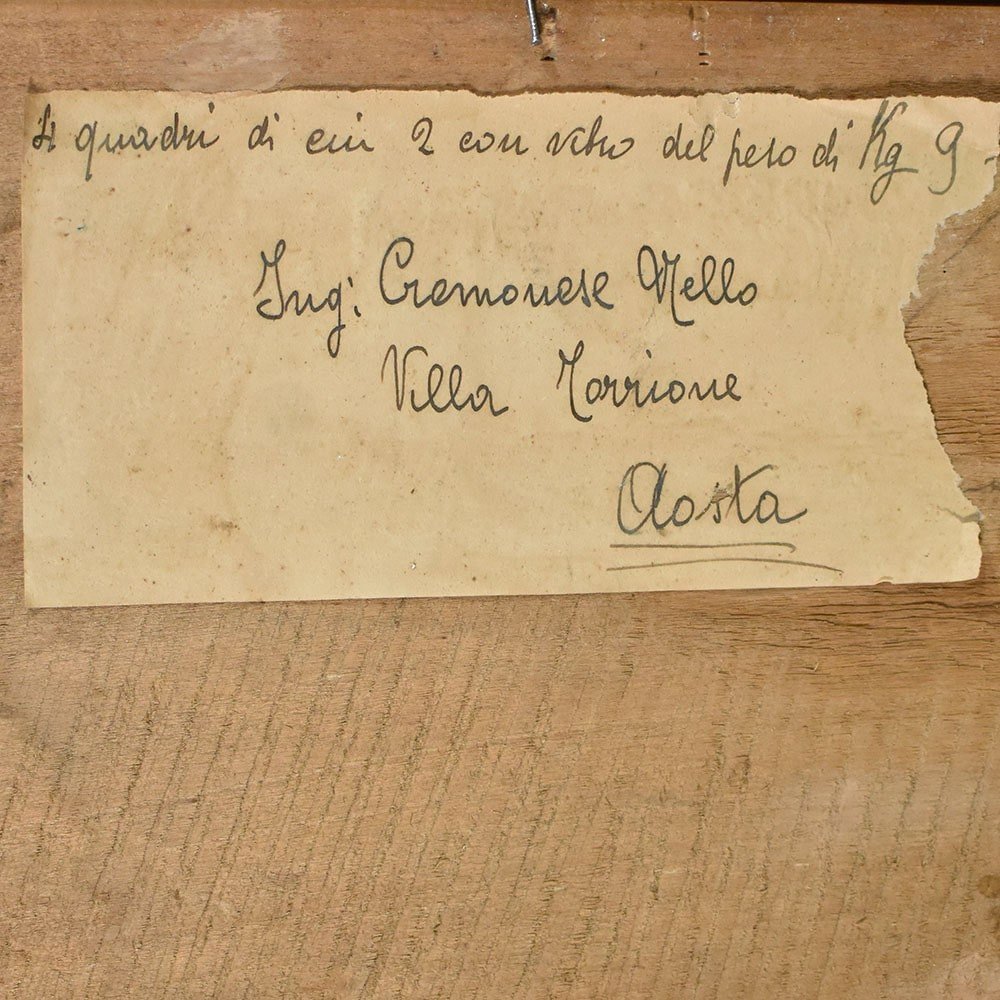 4 quadri di cui 2 con vetro del peso di Kg 9
Ing: Cremonese Nello
Villa Torrione
Aosta